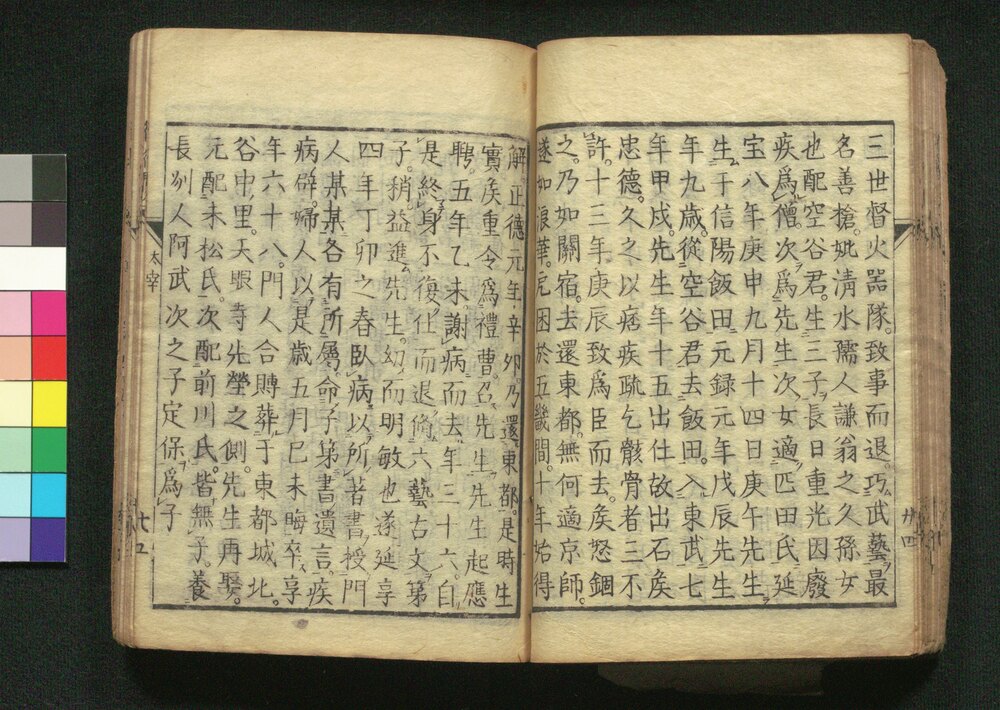 三世督火器隊。致事而退。巧武藝最
名善槍。妣清水孺人謙翁之久孫女
也配空谷君。生三子。長曰重光因廢
疾爲僧。次爲先生次女適匹田氏延
宝八年庚申九月十四日庚午先生
生于信陽飯田元録元年戊辰先生
年九歳。從空谷君去飯田。入東武七
年甲戌先生年十五出仕故出石矦
忠德。久之以痞疾疏乞骸骨者三不
許。十三年庚辰致爲臣而去。矦怒錮
之。乃如關宿。去還東都。無何適京師。
遂如浪華。危困於五畿間。十年始得
解。正德元年辛卯。乃還東都。是時生
實矦重令爲禮曹。召先生。先生起應
聘。五年乙未。謝病而去。年三十六。自
是終身不復仕而退脩六藝古文弟
子。稍益進。先生。幼而明敏也遂延享
四年丁卯之春臥病。以所著書授門
人某某各有所屬。命子弟書遺言。疾
病。辟婦人以是歳五月巳未晦卒。享
年六十八。門人合賻葬于東都城北。
谷中。里。天眼寺先塋之側。先生再娶。
元配未松氏。次配前川氏。皆無子。養
長別人阿武次之子定保爲子
太宰
廿四
七五